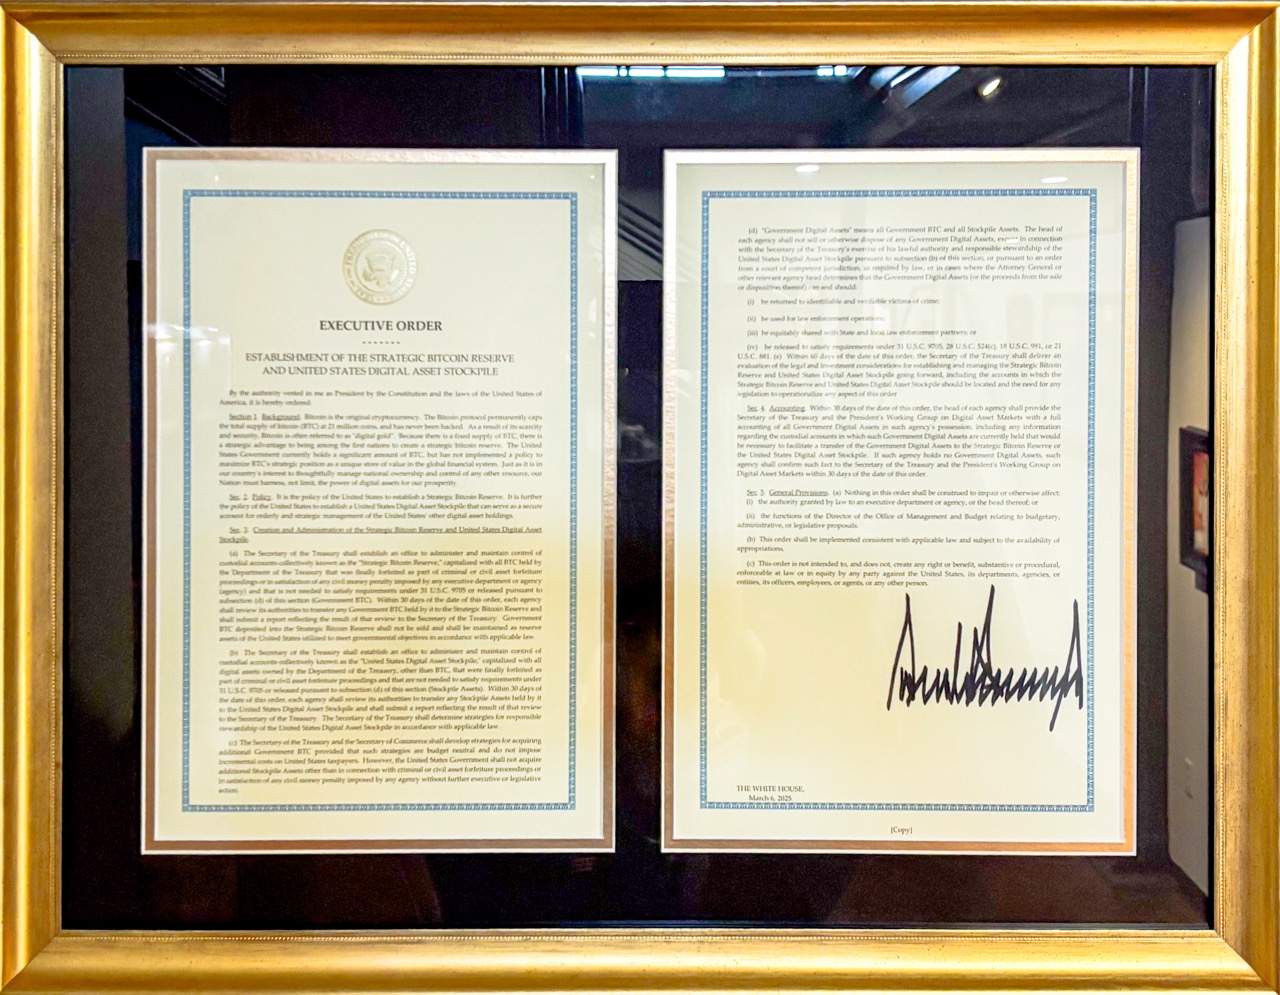 EXECUTIVE ORDER
- - - - - - -
ESTABLISHMENT OF THE STRATEGIC BITCOIN RESERVE
AND UNITED STATES DIGITAL ASSET STOCKPILE
By the authority vested in me as President by the Constitution and the laws of the United States of
America, it is hereby ordered:
Section 1. Background. Bitcoin is the original cryptocurrency. The Bitcoin protocol permanently caps
the total supply of bitcoin (BTC) at 21 million coins, and has never been hacked. As a result of its scarcity
and security, Bitcoin is often referred to as "digital gold". Because there is a fixed supply of BTC, there is
a strategic advantage to being among the first nations to create a strategic bitcoin reserve. The United
States Government currently holds a significant amount of BTC, but has not implemented a policy to
maximize BTC's strategic position as a unique store of value in the global financial system. Just as it is in
our country's interest to thoughtfully manage national ownership and control of any other resource, our
Nation must harness, not limit, the power of digital assets for our prosperity.
Sec. 2. Policy. It is the policy of the United States to establish a Strategic Bitcoin Reserve. It is further
the policy of the United States to establish a United States Digital Asset Stockpile that can serve as a secure
account for orderly and strategic management of the United States' other digital asset holdings.
Sec. 3. Creation and Administration of the Strategic Bitcoin Reserve and United States Digital Asset
Stockpile.
(a) The Secretary of the Treasury shall establish an office to administer and maintain control of
custodial accounts collectively known as the "Strategic Bitcoin Reserve," capitalized with all BTC held by
the Department of the Treasury that was finally forfeited as part of criminal or civil asset forfeiture
proceedings or in satisfaction of any civil money penalty imposed by any executive department or agency
(agency) and that is not needed to satisfy requirements under 31 U.S.C. 9705 or released pursuant to
subsection (d) of this section (Government BTC). Within 30 days of the date of this order, each agency
shall review its authorities to transfer any Government BTC held by it to the Strategic Bitcoin Reserve and
shall submit a report reflecting the result of that review to the Secretary of the Treasury. Government
BTC deposited into the Strategic Bitcoin Reserve shall not be sold and shall be maintained as reserve
assets of the United States utilized to meet governmental objectives in accordance with applicable law.
(b) The Secretary of the Treasury shall establish an office to administer and maintain control of
custodial accounts collectively known as the "United States Digital Asset Stockpile," capitalized with all
digital assets owned by the Department of the Treasury, other than BTC, that were finally forfeited as
part of criminal or civil asset forfeiture proceedings and that are not needed to satisfy requirements under
31 U.S.C. 9705 or released pursuant to subsection (d) of this section (Stockpile Assets). Within 30 days of
the date of this order, each agency shall review its authorities to transfer any Stockpile Assets held by it
to the United States Digital Asset Stockpile and shall submit a report reflecting the result of that review
to the Secretary of the Treasury. The Secretary of the Treasury shall determine strategies for responsible
stewardship of the United States Digital Asset Stockpile in accordance with applicable law.
(c) The Secretary of the Treasury and the Secretary of Commerce shall develop strategies for acquiring
additional Government BTC provided that such strategies are budget neutral and do not impose
incremental costs on United States taxpayers. However, the United States Government shall not acquire
additional Stockpile Assets other than in connection with criminal or civil asset forfeiture proceedings or
in satisfaction of any civil money penalty imposed by any agency without further executive or legislative
action.
(d) "Government Digital Assets" means all Government BTC and all Stockpile Assets. The head of
each agency shall not sell or otherwise dispose of any Government Digital Assets, except in connection
with the Secretary of the Treasury's exercise of his lawful authority and responsible stewardship of the
United States Digital Asset Stockpile pursuant to subsection (b) of this section, or pursuant to an order
from a court of competent jurisdiction, as required by law, or in cases where the Attorney General or
other relevant agency head determines that the Government Digital Assets (or the proceeds from the sale
or disposition thereof) can and should:
(i) be returned to identifiable and verifiable victims of crime;
(ii) be used for law enforcement operations;
(iii) be equitably shared with State and local law enforcement partners; or
(iv) be released to satisfy requirements under 31 U.S.C. 9705, 28 U.S.C. 524(c), 18 U.S.C. 981, or 21
U.S.C. 881. (e) Within 60 days of the date of this order, the Secretary of the Treasury shall deliver an
evaluation of the legal and investment considerations for establishing and managing the Strategic Bitcoin
Reserve and United States Digital Asset Stockpile going forward, including the accounts in which the
Strategic Bitcoin Reserve and United States Digital Asset Stockpile should be located and the need for any
legislation to operationalize any aspect of this order
Sec. 4. Accounting. Within 30 days of the date of this order, the head of each agency shall provide the
Secretary of the Treasury and the President's Working Group on Digital Asset Markets with a full
accounting of all Government Digital Assets in such agency's possession, including any information
regarding the custodial accounts in which such Government Digital Assets are currently held that would
be necessary to facilitate a transfer of the Government Digital Assets to the Strategic Bitcoin Reserve or
the United States Digital Asset Stockpile. If such agency holds no Government Digital Assets, such
agency shall confirm such fact to the Secretary of the Treasury and the President's Working Group on
Digital Asset Markets within 30 days of the date of this order.
Sec. 5. General Provisions. (a) Nothing in this order shall be construed to impair or otherwise affect:
(i) the authority granted by law to an executive department or agency, or the head thereof; or
(ii) the functions of the Director of the Office of Management and Budget relating to budgetary,
administrative, or legislative proposals.
(b) This order shall be implemented consistent with applicable law and subject to the availability of
appropriations.
(c) This order is not intended to, and does not, create any right or benefit, substantive or procedural,
enforceable at law or in equity by any party against the United States, its departments, agencies, or
entities, its officers, employees, or agents, or any other person.
THE WHITE HOUSE,
March 6, 2025.
[Copy]